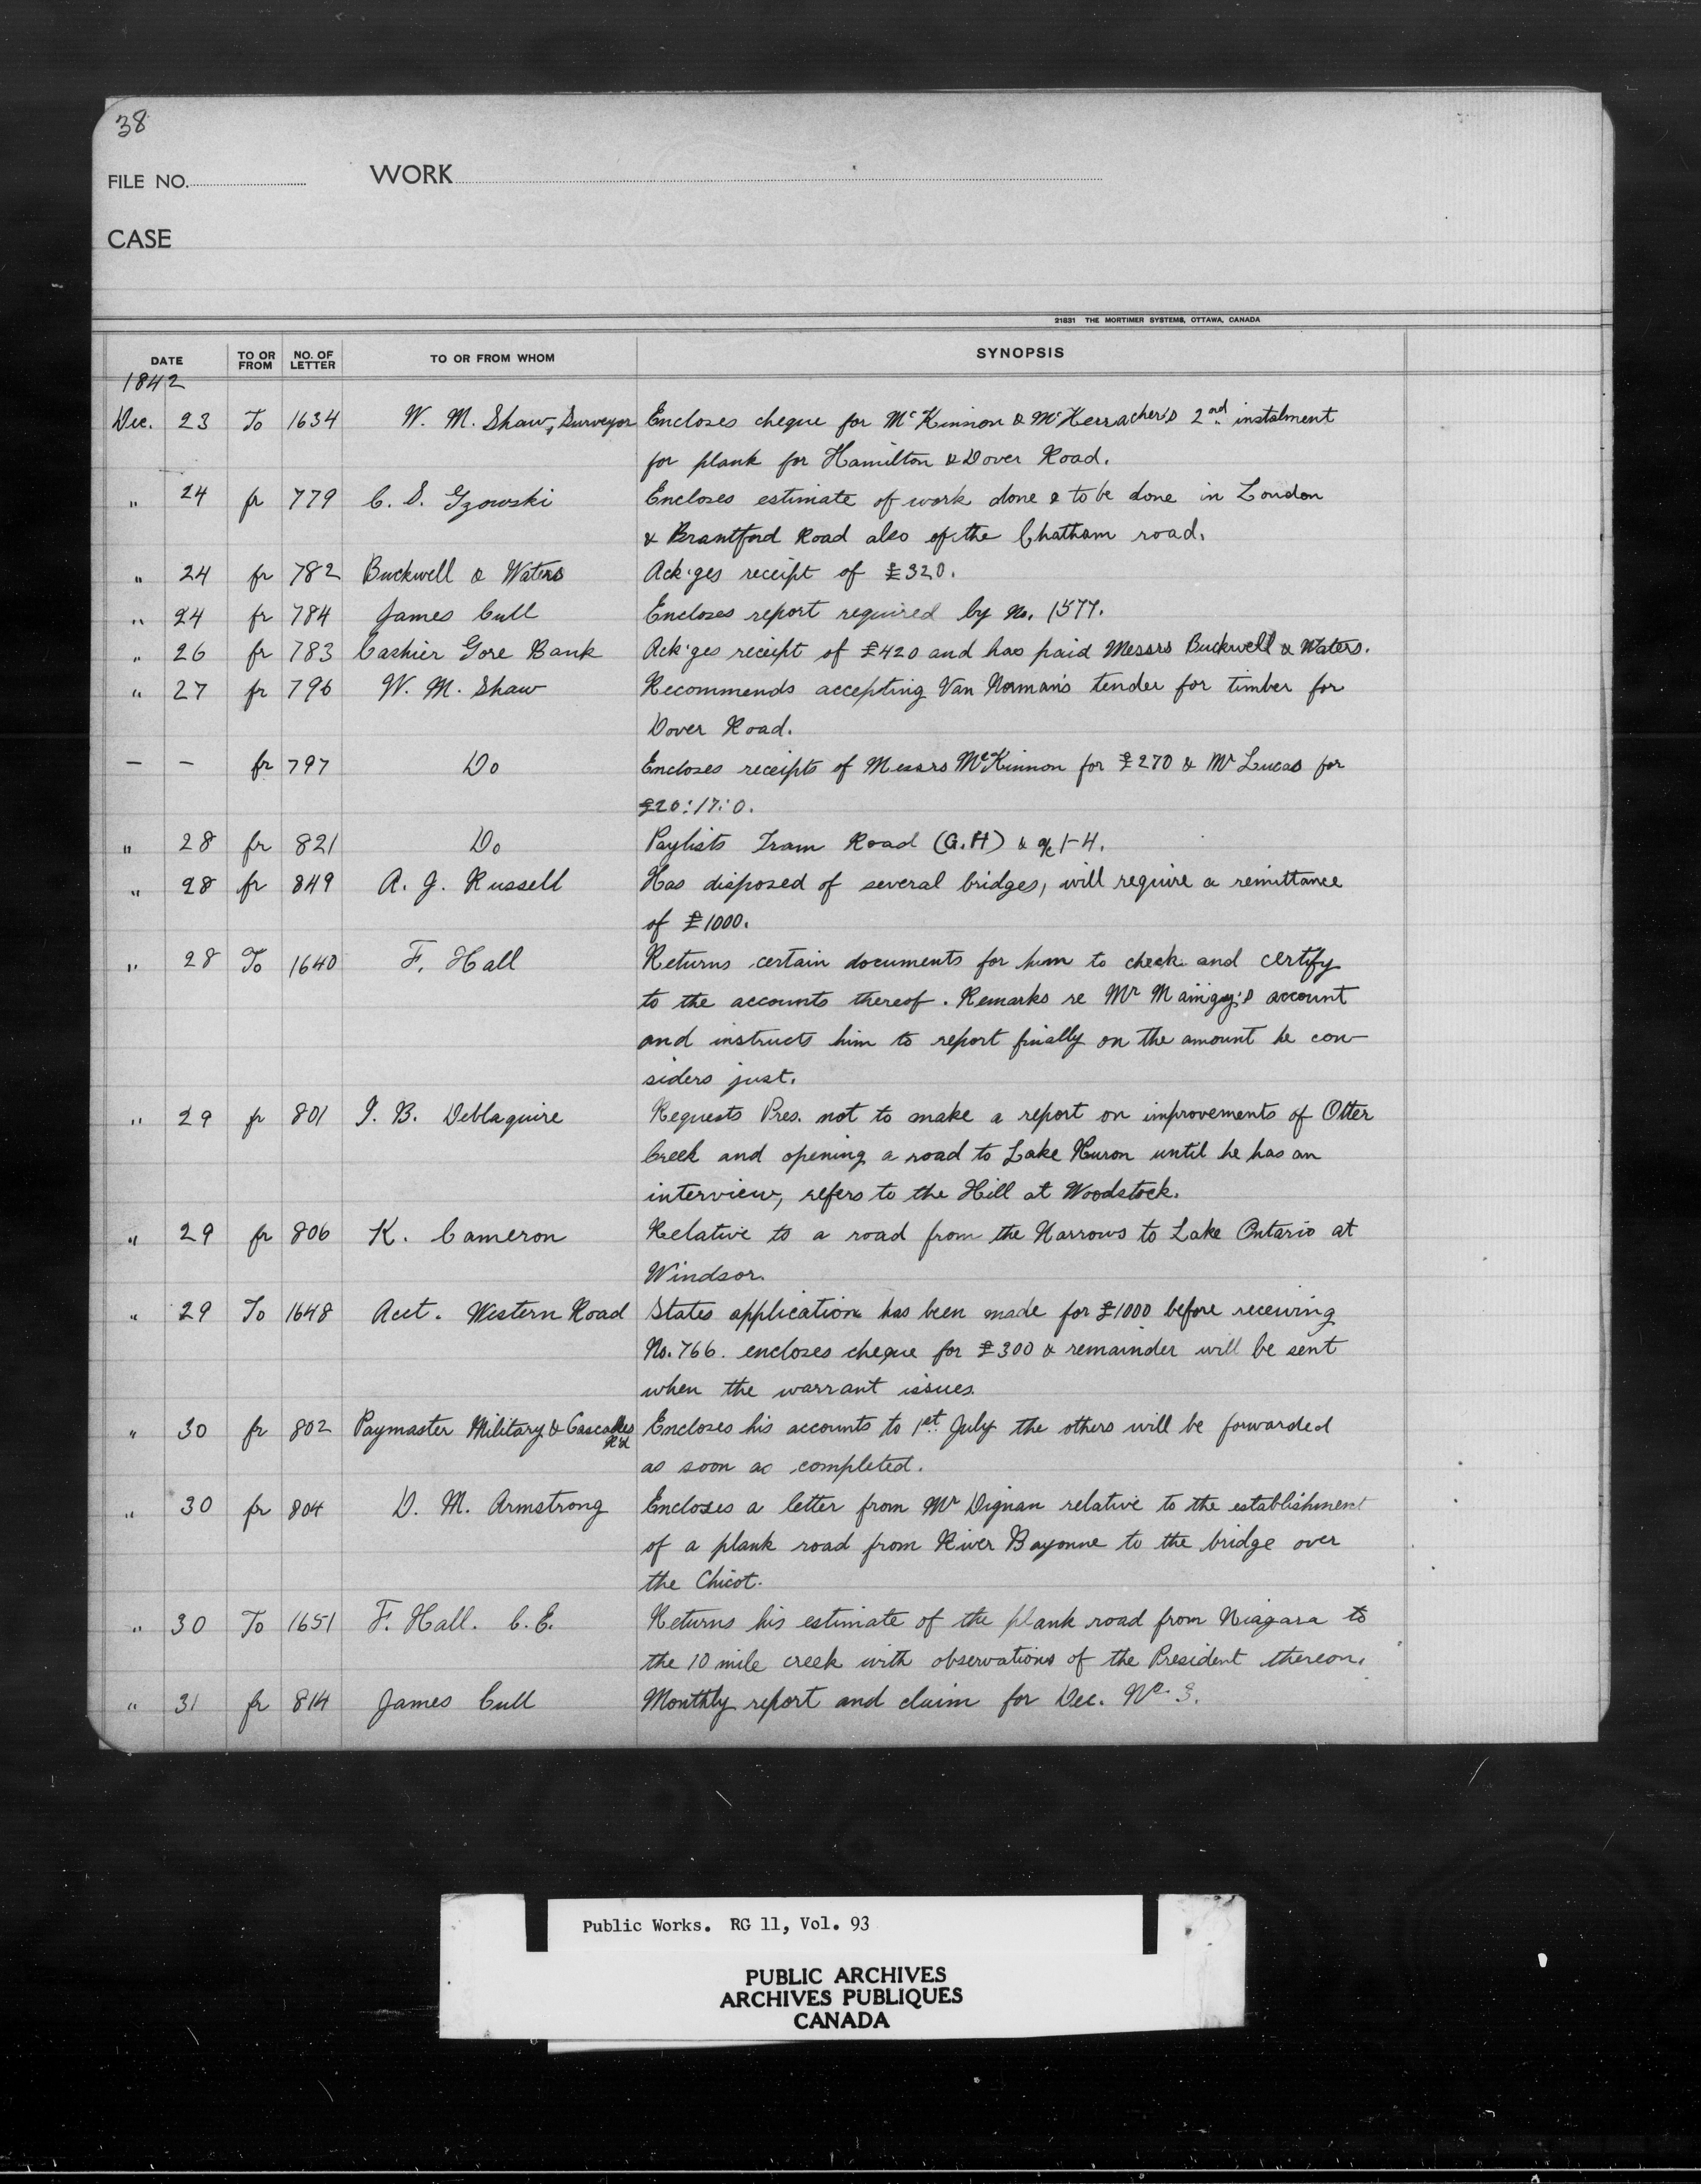 38
FILE NO. WORK
CASE
21831 THE MORTIMER SYSTEMS, OTTAWA, CANADA
DATE TO OR FROM NO. OF LETTER TO OR FROM WHOM SYNOPSIS
1842
Dec. 23 To 1634 W. M. Shaw, Surveyor Encloses cheque for McKinnon & McKerracher's 2nd instalment
for plank for Hamilton & Dover Road.
" 24 fr 779 C. S. Gzowski Encloses estimate of work done & to be done in London
& Brantford Road also of the Chatham road.
" 24 fr 782 Buckwell & Waters Ack'ges receipt of £320.
" 24 fr 784 James Cull Encloses report required by No. 1577.
" 26 fr 783 Cashier Gore Bank Ack'ges receipt of £420 and has paid Messrs Buckwell & Waters.
" 27 fr 796 W. M. Shaw Recommends accepting Van Norman's tender for timber for
Dover Road.
— — fr 797 Do Encloses receipts of Messrs McKinnon for £270 & Mr Lucas for
£20:17:0.
" 28 fr 821 Do Paylists Tram Road (G.H) & a/c 1-4.
" 28 fr 849 A. J. Russell Has disposed of several bridges, will require a remittance
of £1000.
" 28 To 1640 F. Hall Returns certain documents for him to check and certify
to the accounts thereof. Remarks re Mr account
and instructs him to report finally on the amount he con-
siders just.
" 29 fr 801 P. B. Deblaquire Requests Pres. not to make a report on improvements of Otter
Creek and opening a road to Lake Huron until he has an
interview, refers to the Hill at Woodstock.
" 29 fr 806 K. Cameron Relative to a road from the Narrows to Lake Ontario at
Windsor.
" 29 To 1648 Acct. Western Road States application has been made for £1000 before receiving
No. 766. encloses cheque for £300 & remainder will be sent
when the warrant issues.
" 30 fr 802 Paymaster Military & Cascades R'd Encloses his accounts to 1st July the others will be forwarded
as soon as completed.
" 30 fr 804 D. M. Armstrong Encloses a letter from Mr Dignan relative to the establishment
of a plank road from River Bayonne to the bridge over
the Chicot.
" 30 To 1651 F. Hall. C.E. Returns his estimate of the plank road from Niagara to
the 10 mile creek with observations of the President thereon.
" 31 fr 814 James Cull Monthly report and claim for Dec. No. 3.
Public Works. RG 11, Vol. 93
PUBLIC ARCHIVES
ARCHIVES PUBLIQUES
CANADA